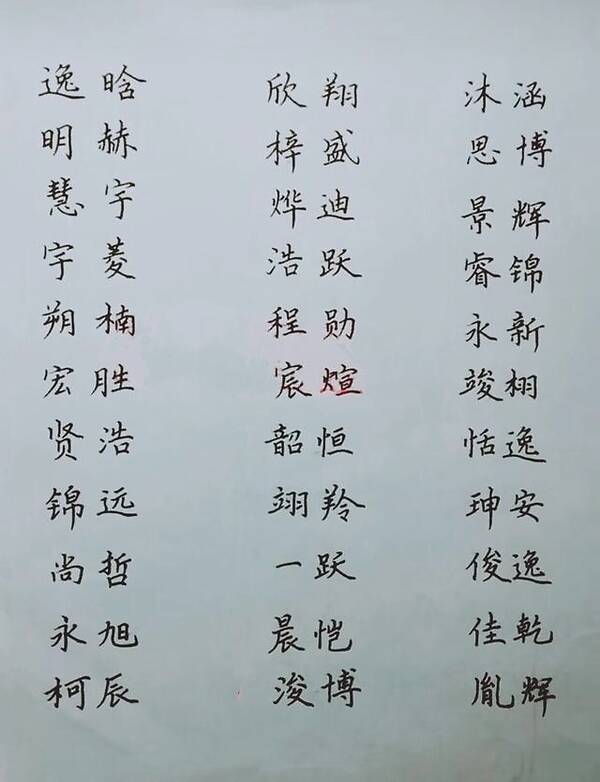 逸晗 欣翔 沐涵
明赫 梓盛 思博
慧宇 烨迪 景辉
宇菱 浩跃 睿锦
朔楠 程勋 永新
宏胜 宸煊 竣栩
贤浩 韶恒 恬逸
锦远 翊羚 珅安
尚哲 一跃 俊逸
永旭 晨恺 佳乾
柯辰 浚博 胤辉